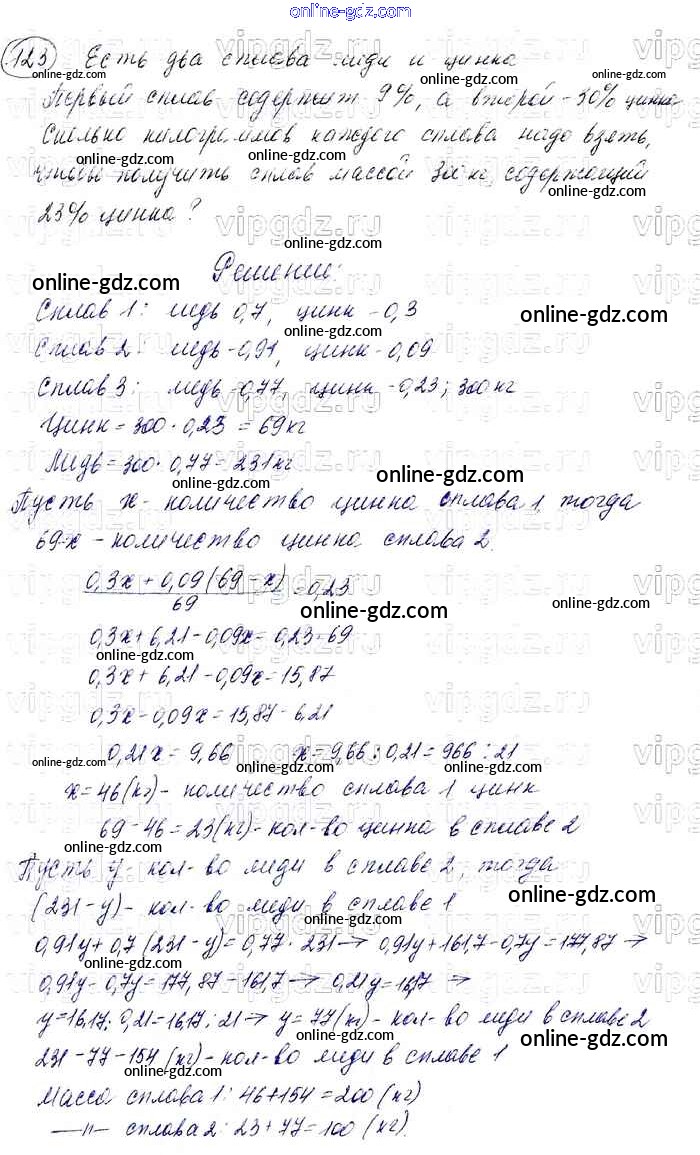 online-gdz.com
123 Есть два сплава меди и цинка
Первый сплав содержит 9%, а второй - 30% цинка
Сколько килограммов каждого сплава надо взять,
чтобы получить сплав массой 300 кг, содержащий
23% цинка?
Решение:
Сплав 1: медь 0,7, цинк - 0,3
Сплав 2: медь - 0,91, цинк - 0,09
Сплав 3: медь - 0,77, цинк - 0,23; 300 кг
Цинк = 300 · 0,23 = 69 кг
Медь = 300 · 0,77 = 231 кг
Пусть x - количество цинка сплава 1, тогда
69-x - количество цинка сплава 2.
0,3x + 0,09(69-x) / 69 = 0,23
0,3x + 6,21 - 0,09x = 0,23·69
0,3x + 6,21 - 0,09x = 15,87
0,3x - 0,09x = 15,87 - 6,21
0,21x = 9,66 x = 9,66 : 0,21 = 966 : 21
x = 46 (кг) - количество сплава 1 цинк
69 - 46 = 23 (кг) - кол-во цинка в сплаве 2
Пусть y - кол-во меди в сплаве 2, тогда
(231 - y) - кол-во меди в сплаве 1
0,91y + 0,7 (231 - y) = 0,77 · 231 → 0,91y + 161,7 - 0,7y = 177,87 →
0,91y - 0,7y = 177,87 - 161,7 → 0,21y = 16,17 →
y = 16,17 : 0,21 = 16,17 : 21 → y = 77 (кг) - кол-во меди в сплаве 2
231 - 77 - 154 (кг) - кол-во меди в сплаве 1
Масса сплава 1: 46 + 154 = 200 (кг)
—"— сплава 2: 23 + 77 = 100 (кг).